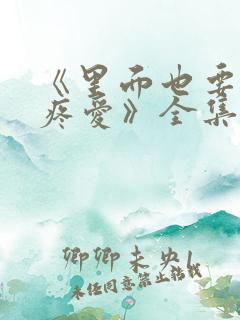 《里面也要
疼爱》全集
卿卿未央l
未经同意禁止转载